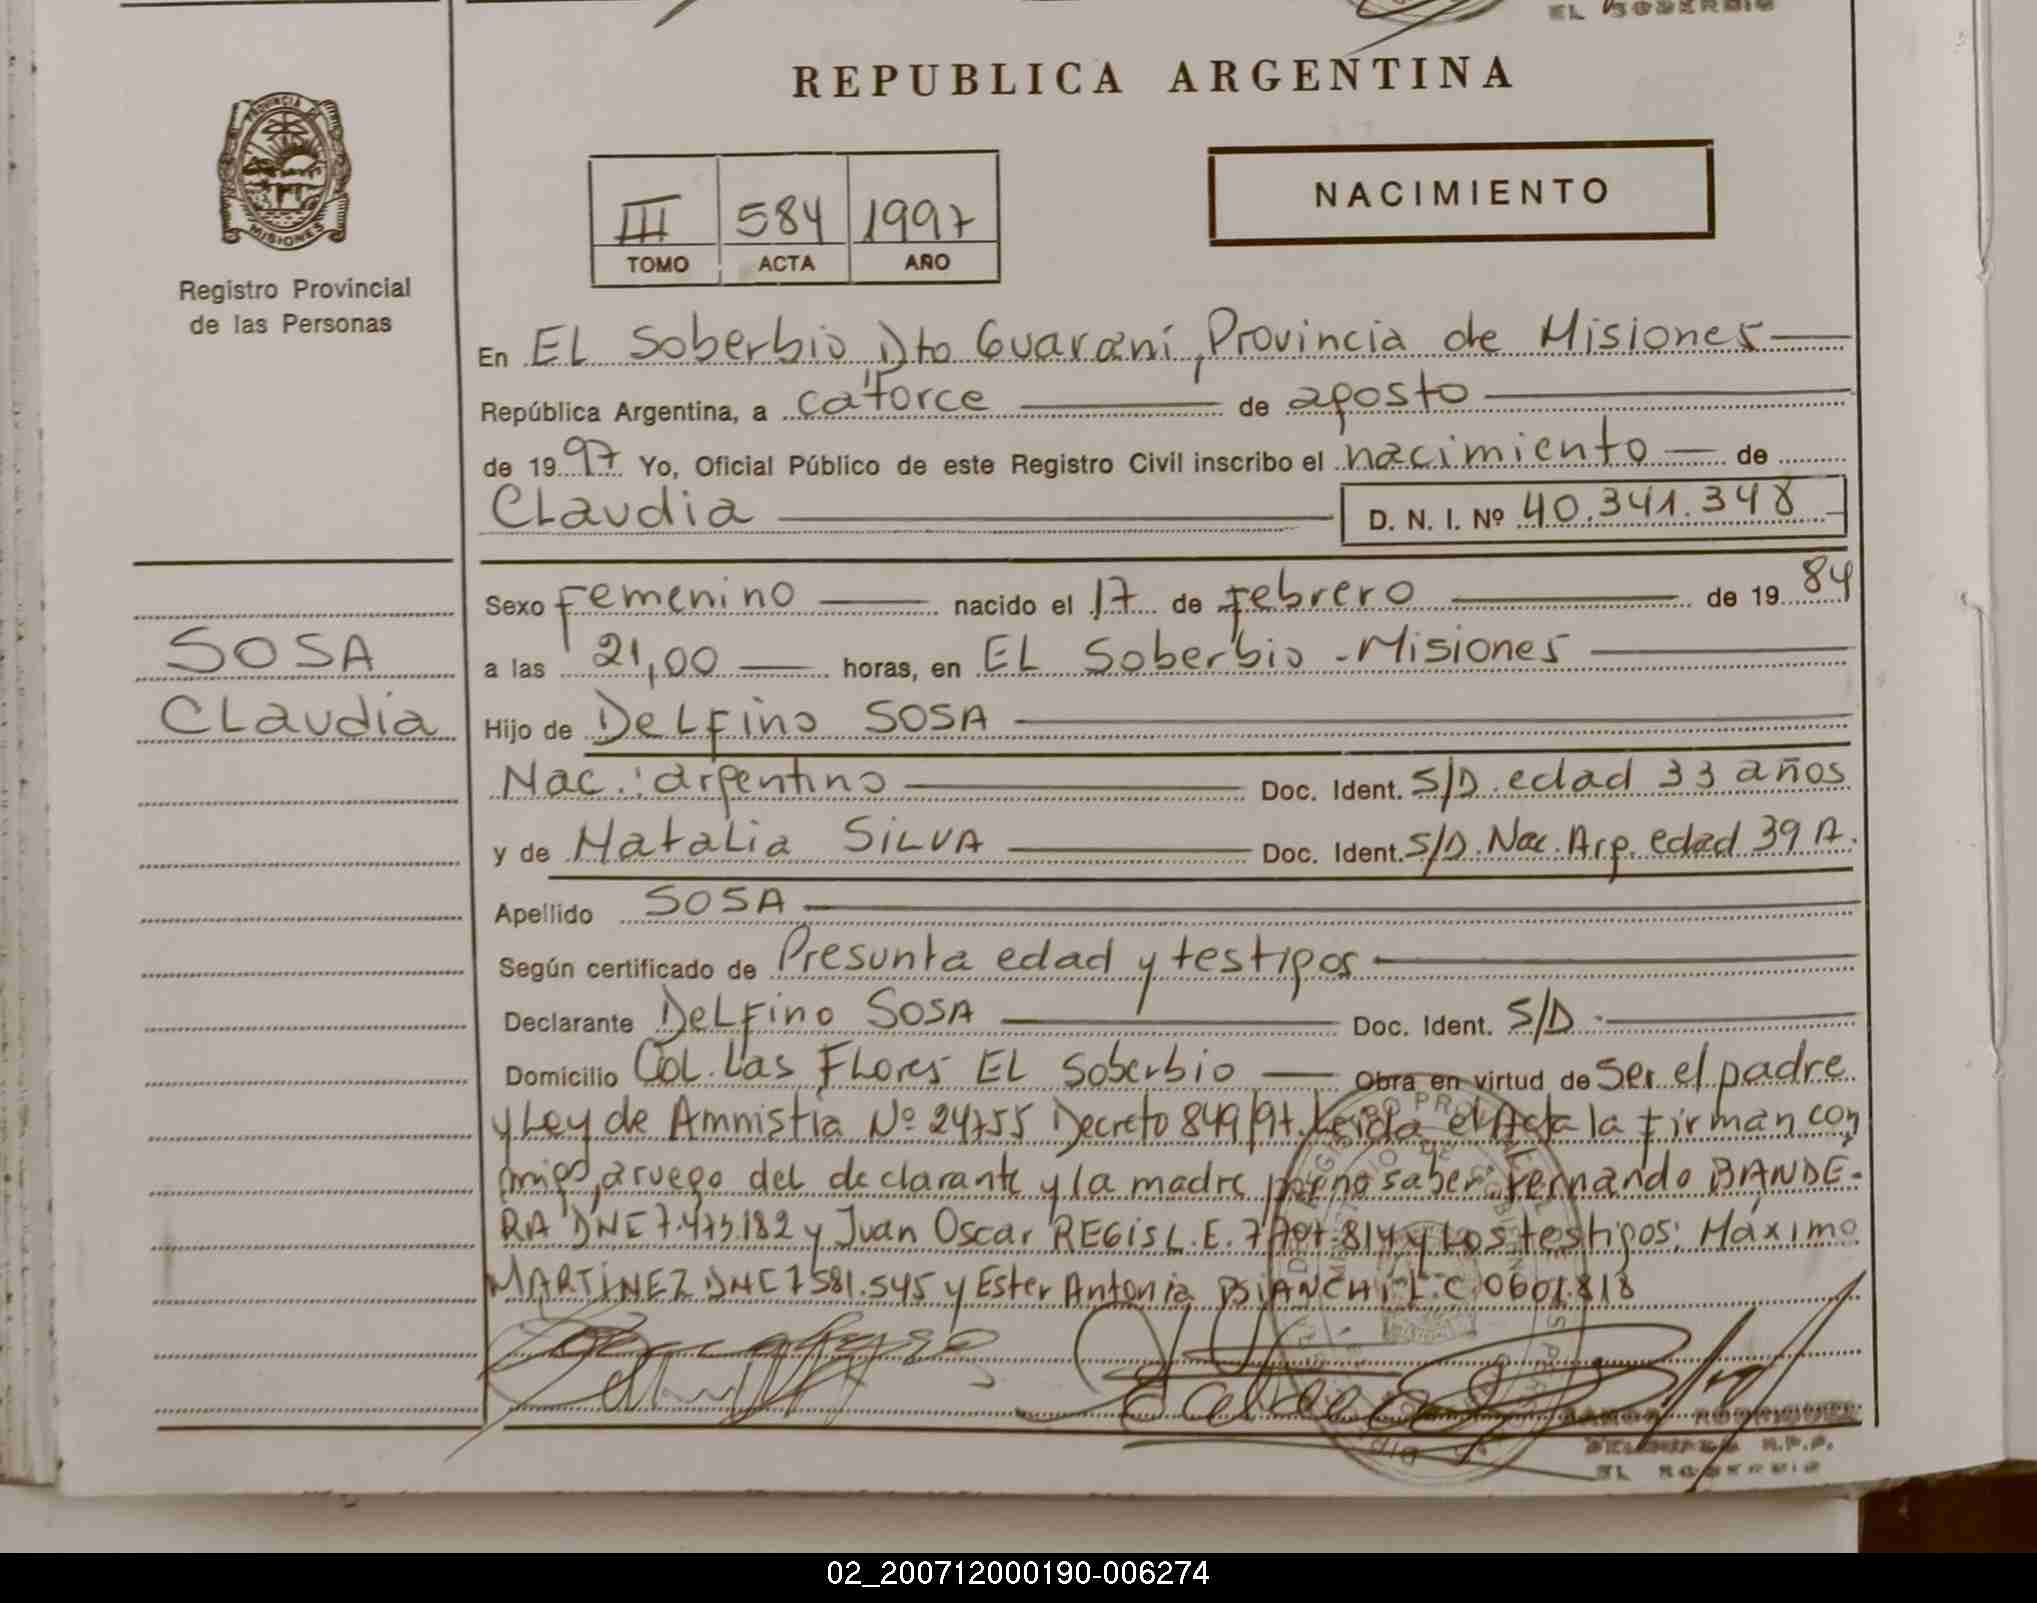 EL SOBERBIO
REPUBLICA ARGENTINA
PROVINCIA DE
MISIONES
Registro Provincial
de las Personas
III 584 1997
TOMO ACTA AÑO
NACIMIENTO
En EL Soberbio Dto Guaraní, Provincia de Misiones
República Argentina, a catorce de agosto
de 1997 Yo, Oficial Público de este Registro Civil inscribo el nacimiento de
Claudia D. N. I. Nº 40.341.348
Sexo Femenino nacido el 17 de Febrero de 1984
a las 21,00 horas, en EL Soberbio - Misiones
SOSA
Claudia
Hijo de DeLFino SOSA
Nac.: argentino Doc. Ident. S/D. edad 33 años
y de Natalia SILVA Doc. Ident. S/D. Nac. Arg. edad 39 A.
Apellido SOSA
Según certificado de Presunta edad y testigos
Declarante DeLFino SOSA Doc. Ident. S/D.
Domicilio Col. Las Flores EL Soberbio Obra en virtud de Ser el padre
y Ley de Amnistía Nº 24755 Decreto 849/97. Leida el Acta la Firman con
migo, a ruego del declarante y la madre por no saber, Fernando BANDE-
RA DNI 7.473.182 y Juan Oscar REGIS L.E. y Los testigos: Máximo
MARTINEZ DNI 7581.545 y Ester Antonia BIANCHI L.C. 0601.818
RAMON RODRIGUEZ
DELEGADO R.P.P.
EL SOBERBIO
02_200712000190-006274